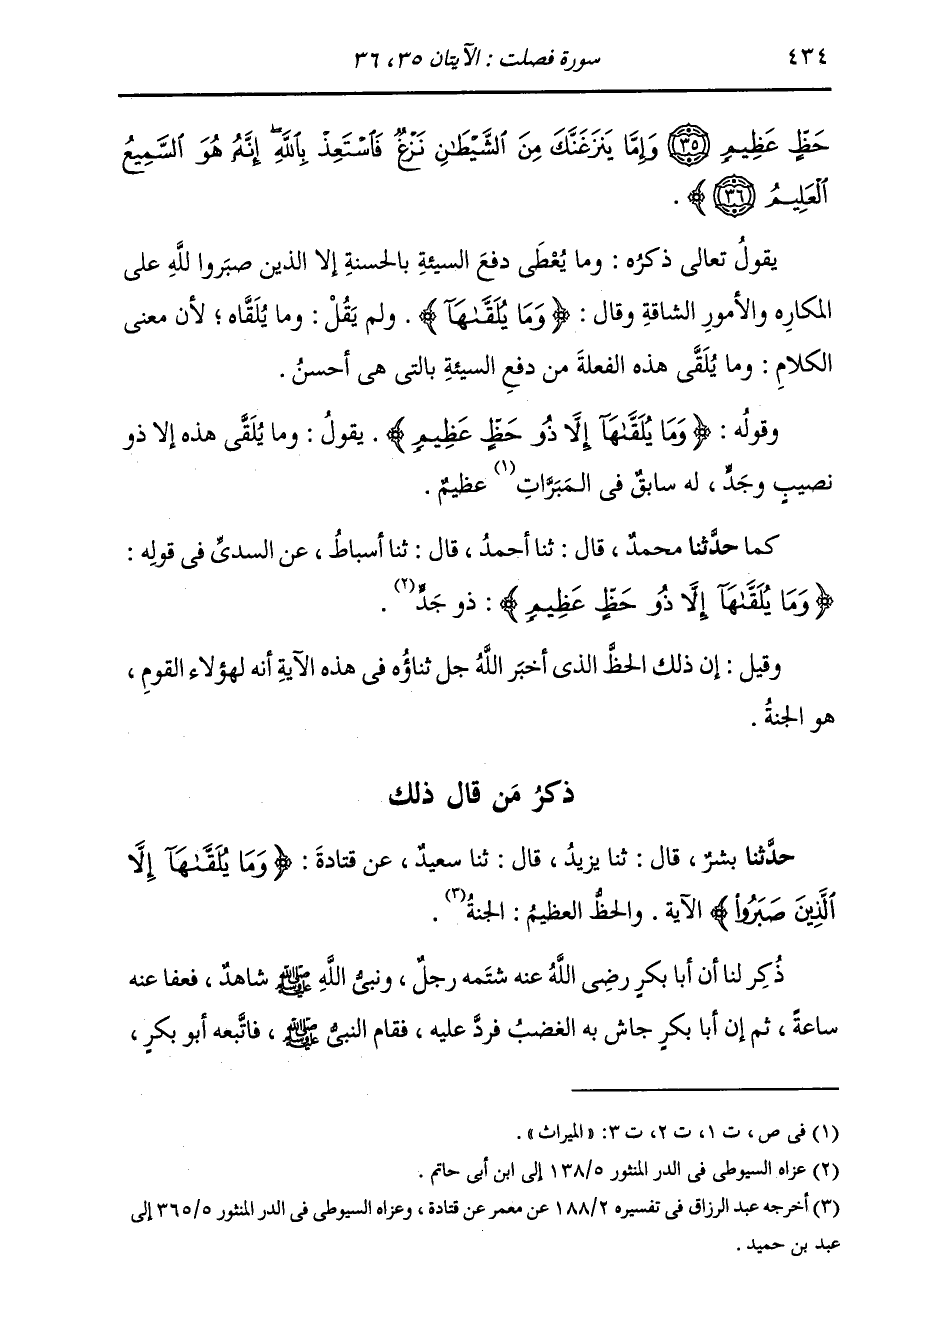 ٤٣٤ سورة فصلت : الآيتان ٣٥، ٣٦
حَظٍّ عَظِيمٍ ﴿٣٥﴾ وَإِمَّا يَنزَغَنَّكَ مِنَ ٱلشَّيْطَٰنِ نَزْغٌ فَٱسْتَعِذْ بِٱللَّهِ ۖ إِنَّهُۥ هُوَ ٱلسَّمِيعُ
ٱلْعَلِيمُ ﴿٣٦﴾ ﴾ .
يقولُ تعالى ذكرُه : وما يُعْطَى دفعَ السيئةِ بالحسنةِ إلا الذين صبَروا للَّهِ على
المكارِه والأمورِ الشاقةِ وقال : ﴿ وَمَا يُلَقَّىٰهَآ ﴾ . ولم يَقُلْ : وما يُلقَّاه ؛ لأن معنى
الكلامِ : وما يُلَقَّى هذه الفعلةَ من دفعِ السيئةِ بالتى هى أحسنُ .
وقولُه : ﴿ وَمَا يُلَقَّىٰهَآ إِلَّا ذُو حَظٍّ عَظِيمٍ ﴾ . يقولُ : وما يُلَقَّى هذه إلا ذو
نصيبٍ وجَدٍّ ، له سابقٌ فى المَبَرَّاتِ(١) عظيمٌ .
كما حدَّثنا محمدٌ ، قال : ثنا أحمدُ ، قال : ثنا أسباطُ ، عن السدىِّ فى قولِه :
﴿ وَمَا يُلَقَّىٰهَآ إِلَّا ذُو حَظٍّ عَظِيمٍ ﴾ : ذو جَدٍّ(٢) .
وقيل : إن ذلك الحظَّ الذى أخبَر اللَّهُ جل ثناؤُه فى هذه الآيةِ أنه لهؤلاء القومِ ،
هو الجنةُ .
ذكرُ مَن قال ذلك
حدَّثنا بشرٌ ، قال : ثنا يزيدُ ، قال : ثنا سعيدٌ ، عن قتادةَ : ﴿ وَمَا يُلَقَّىٰهَآ إِلَّا
ٱلَّذِينَ صَبَرُوا۟ ﴾ الآية . والحظُّ العظيمُ : الجنةُ(٣) .
ذُكِر لنا أن أبا بكرٍ رضِى اللَّهُ عنه شتَمه رجلٌ ، ونبىُّ اللَّهِ ﷺ شاهدٌ ، فعفا عنه
ساعةً ، ثم إن أبا بكرٍ جاش به الغضبُ فردَّ عليه ، فقام النبىُّ ﷺ ، فاتَّبعه أبو بكرٍ ،
(١) فى ص ، ت ١، ت ٢، ت ٣: «الميراث» .
(٢) عزاه السيوطى فى الدر المنثور ١٣٨/٥ إلى ابن أبى حاتم .
(٣) أخرجه عبد الرزاق فى تفسيره ١٨٨/٢ عن معمر عن قتادة ، وعزاه السيوطى فى الدر المنثور ٣٦٥/٥ إلى
عبد بن حميد .